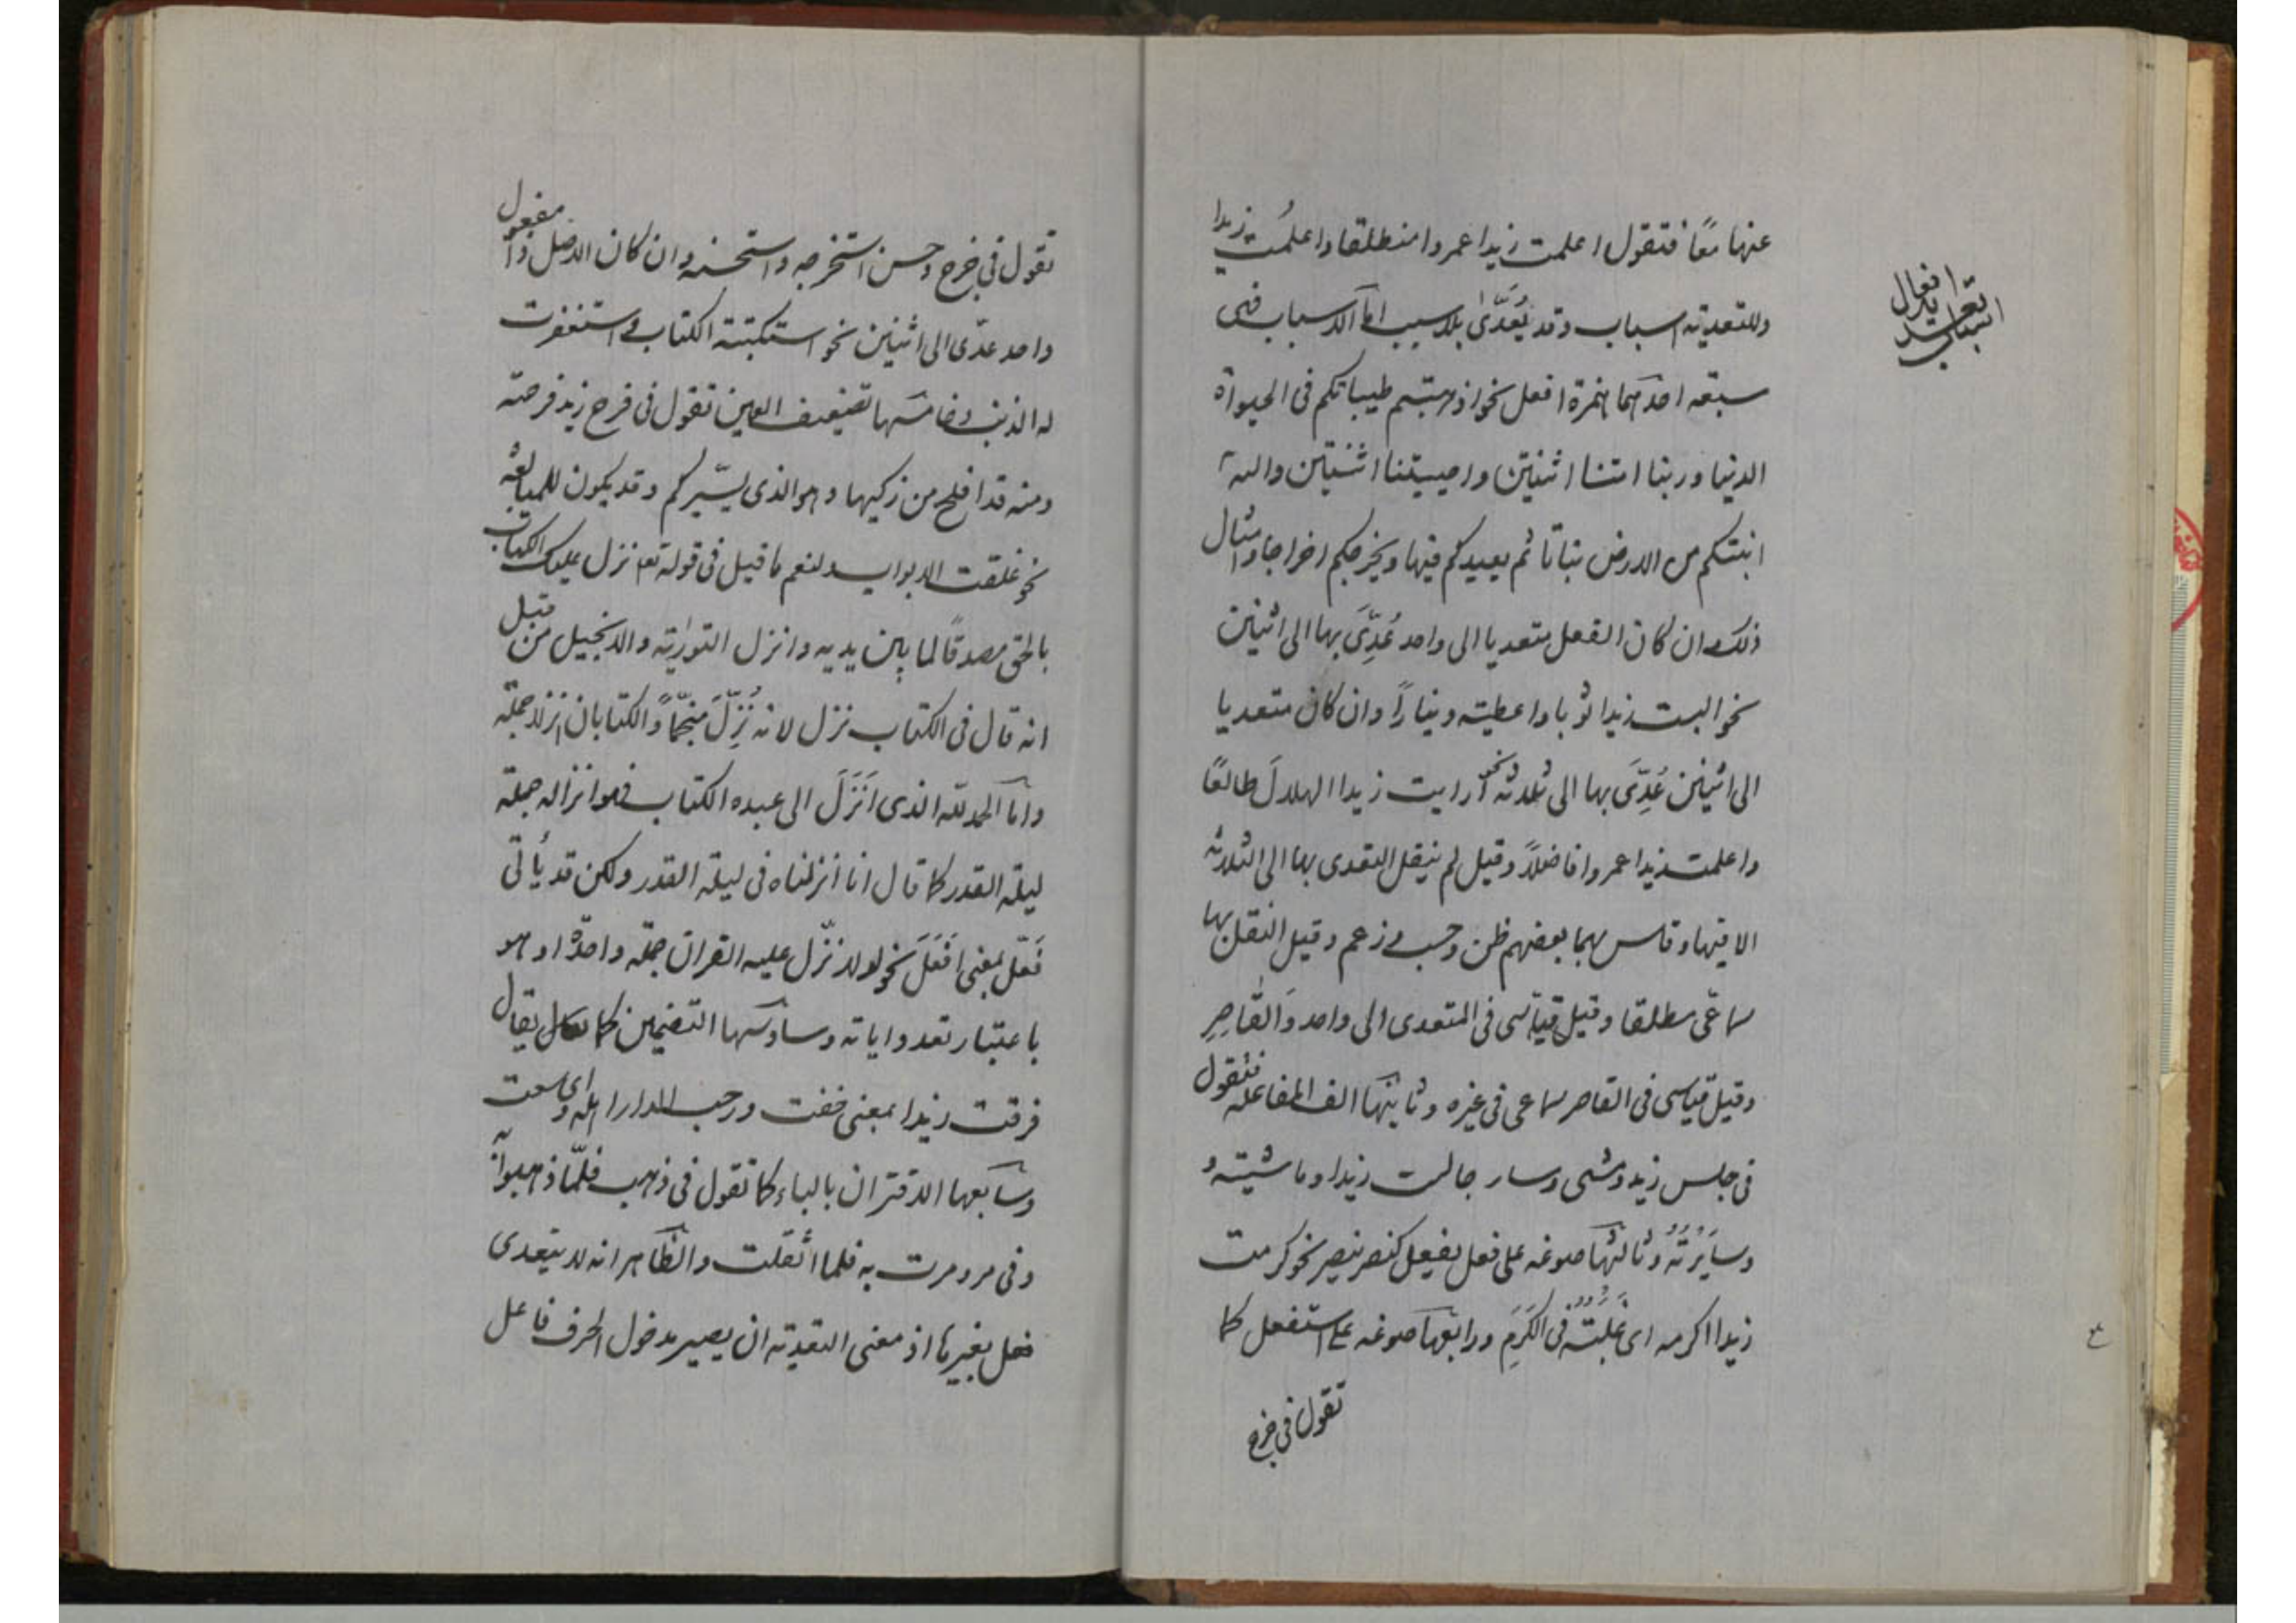 عنها معًا فتقول اعلمت زيدا عمروا منطلقا واعلمت زيدا
وللتعدية اسباب وقد يُعَدّىٰ بلا سبب امّا الاسباب فهى
سبعة احدٰها همزة افعل نحو اذهبتم طيباتكم فى الحيوٰة
الدنيا وربنا امتنا اثنتين واحييتنا اثنتين والله
انبتكم من الارض نباتا ثم يعيدكم فيها ويخرجكم اخراجا وامثال
ذلك وان كان الفعل متعديا الى واحد عُدِّىَ بها الى اثنين
نحو البست زيدا ثوبا واعطيته دينارًا وان كان متعديا
الى اثنين عُدِّىَ بها الى ثلاثة نحو ارايت زيدا الهلالَ طالعًا
واعلمت زيدا عمروا فاضلاً وقيل لم ينقل التعدى بها الى الثلاثة
الا فيها وقاس بهما بعضهم ظن وحسب وزعم وقيل النقل بها
سماعى مطلقا وقيل قياسى فى المتعدى الى واحد وَالقَاصِرِ
وقيل قياسى فى القاصر سماعى فى غيره وثانيها الف المفاعلة فتقول
فى جلس زيد ومشى وسار جالست زيدا وماشيته و
وسايَرْتُهُ وثالثها صوغه على فعل يفعل كنصر ينصر نحو كرمت
زيدا اكرمه اى غَلَبْتُهُ فى الكَرَمِ ورابعها صوغه على استفعل كما
تقول فى خرج
افعال
اسباب تعدية
تقول فى خرج وحسن استخرجه واستحسنه وان كان الاصل ذا مفعول
واحد عدّى الى اثنين نحو استكتبته الكتاب واستغفرت
له الذنب وخامسها تضعيف العين تقول فى فرح زيد فرحته
ومنه قد افلح من زكيها وهو الذى يسّيركم وقد يكون للمبالغة
نحو غلقت الابواب ولنعم ما قيل فى قوله تعا نزل عليك الكتاب
بالحق مصدقًا لما بين يديه وانزل التورٰية والانجيل من قبل
انه قال فى الكتاب نزل لانه نُزِّلَ منجّماً والكتابان انزلا جملة
وامّا الحمد لله الذى اَنزَلَ الى عبده الكتاب فهو انزاله جملة
ليلة القدر كما قال انا انزلناه فى ليلة القدر ولكن قد يأتى
فَعّل بمعنى اَفعَلَ نحو لولا نزّل عليه القران جملة واحدة او هو
باعتبار تعدد اياته وسادسها التضمين كما يقال
فرقت زيدا بمعنى خفت ورحب الدار اهله اى وسعت
وسابعها الاقتران بالباء كما تقول فى ذهب فلمّا ذهبوا به
وفى مر ومرت به فلما اثقلت والظاهر انه لا يتعدى
فعل بغيرها اذ معنى التعدية ان يصير مدخول الحرف فاعل